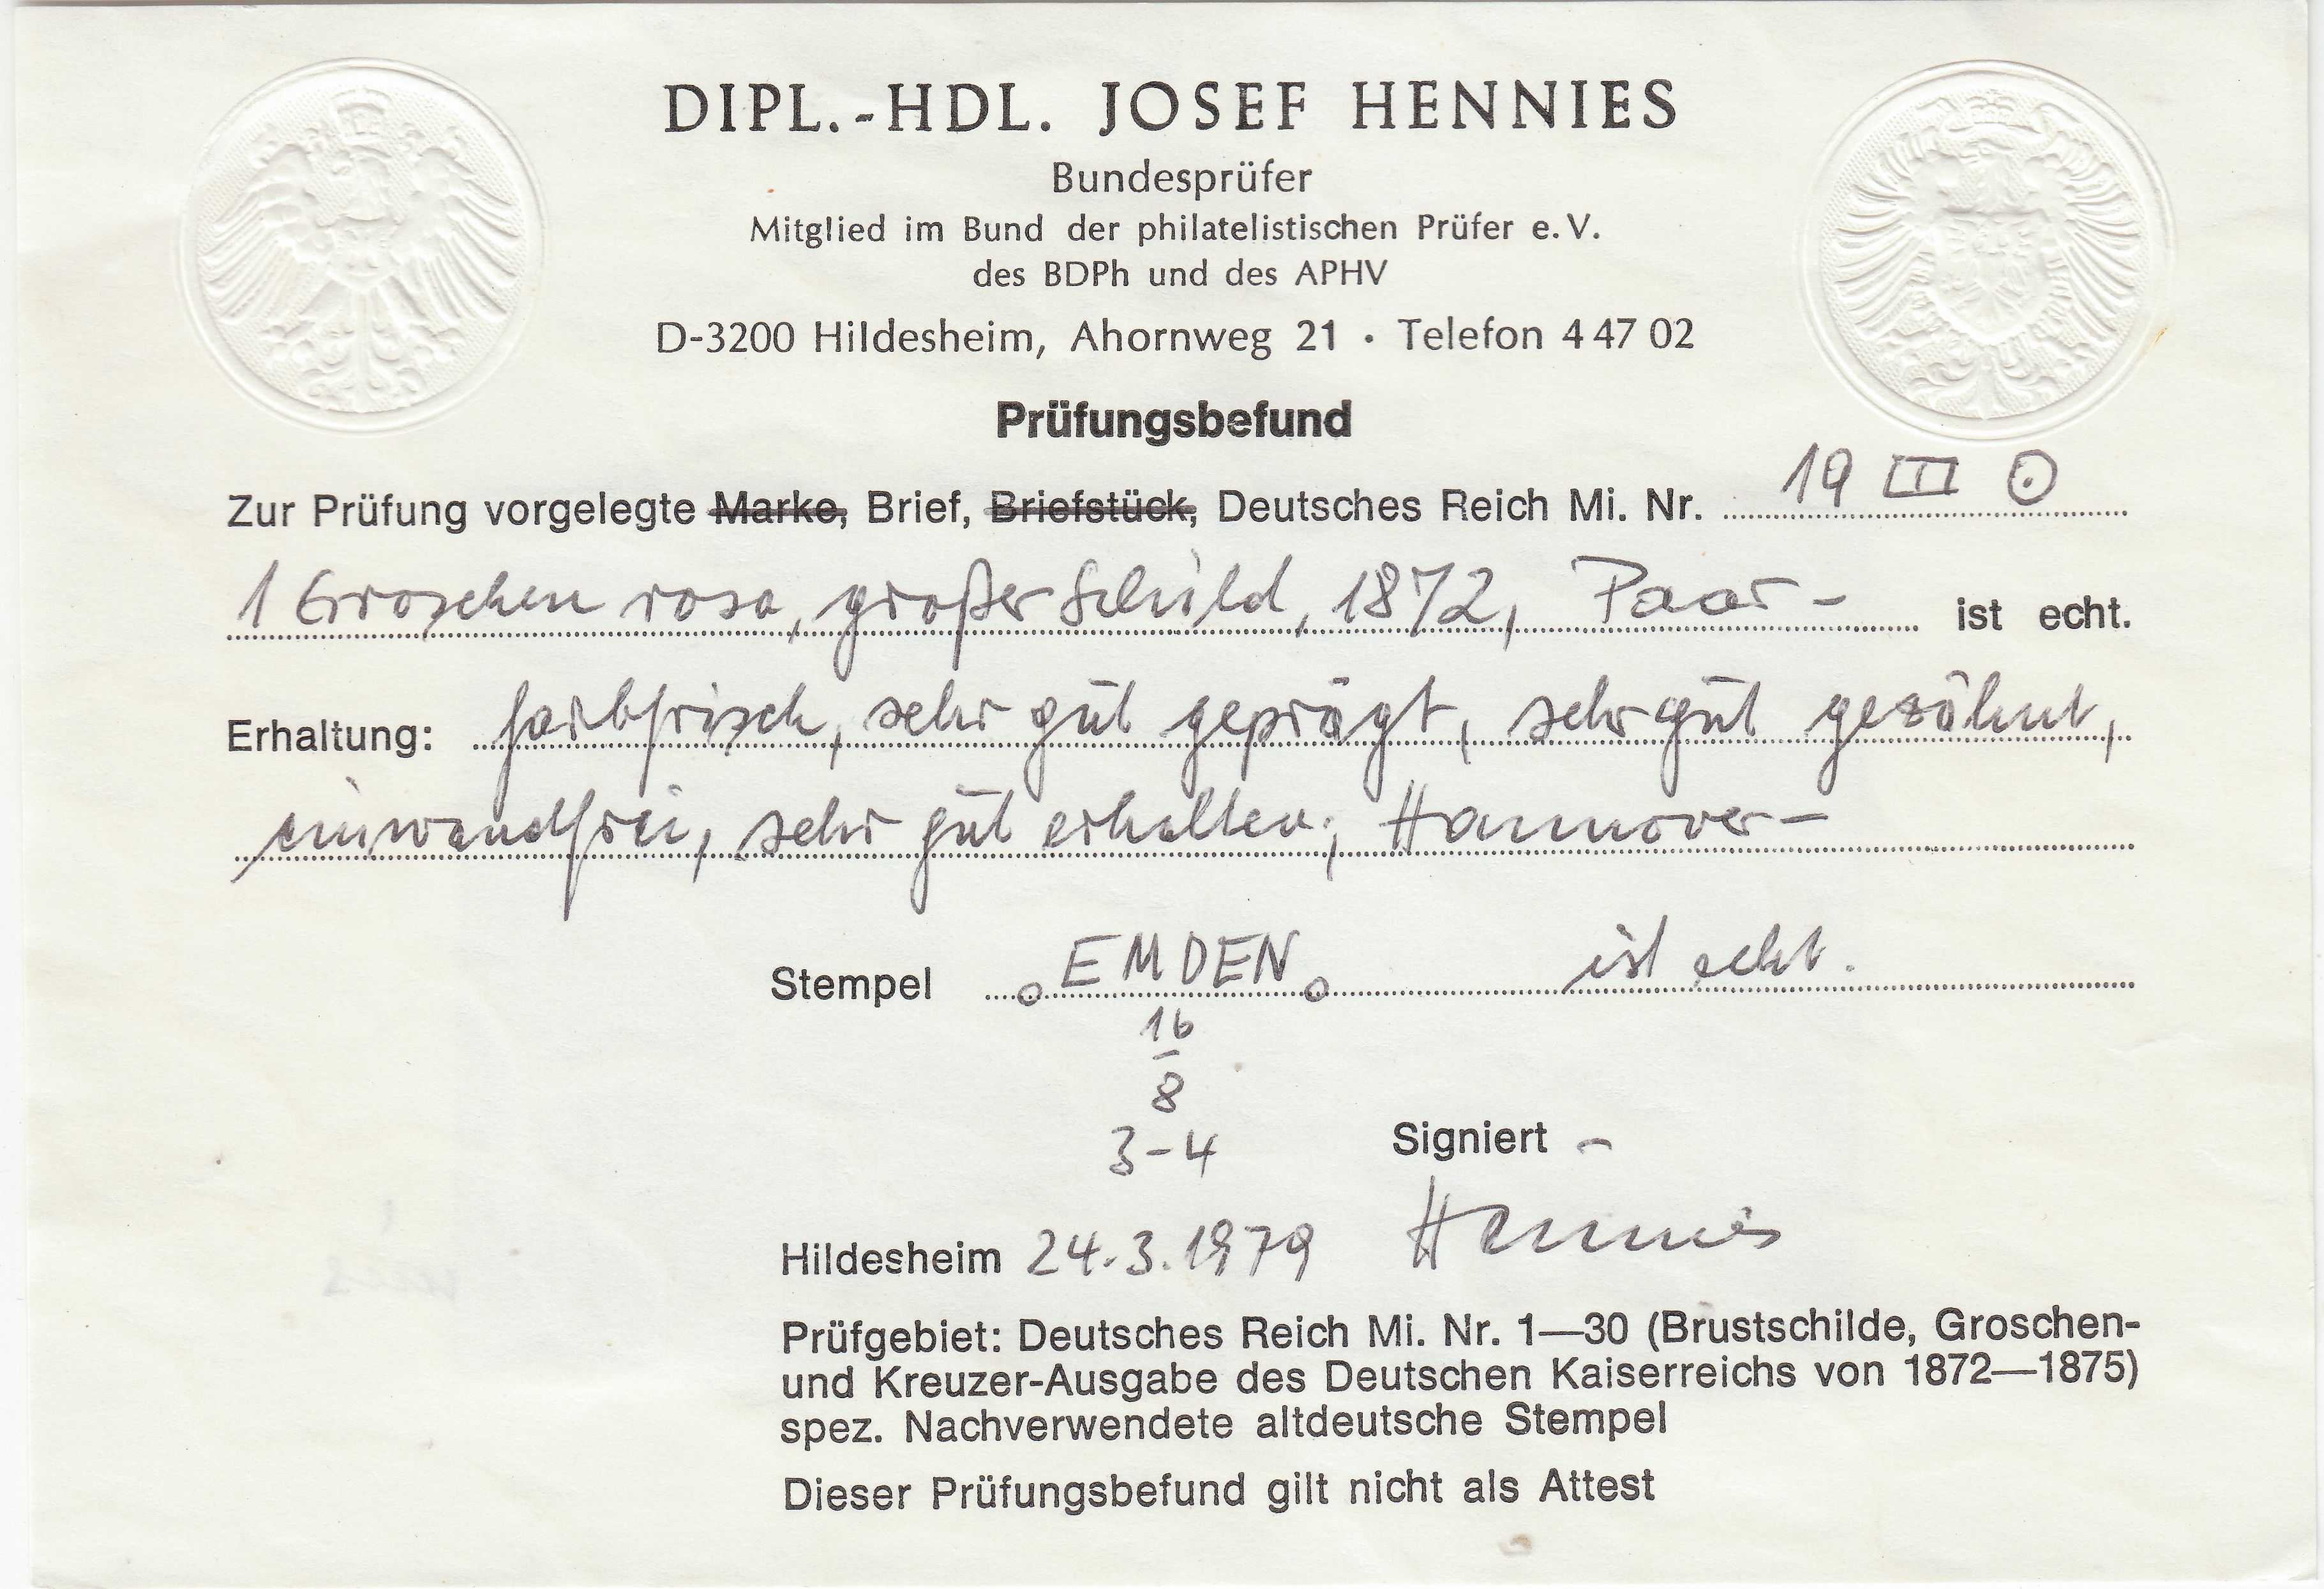 DIPL.-HDL. JOSEF HENNIES
Bundesprüfer
Mitglied im Bund der philatelistischen Prüfer e.V.
des BDPh und des APHV
D-3200 Hildesheim, Ahornweg 21 · Telefon 4 47 02
Prüfungsbefund
Zur Prüfung vorgelegte Marke, Brief, Briefstück, Deutsches Reich Mi. Nr. 19 III ⊙
1 Groschen rosa, großer Schild, 1872, Paar – ist echt.
Erhaltung: farbfrisch, sehr gut geprägt, sehr gut gezähnt,
einwandfrei, sehr gut erhalten; Hannover –
Stempel o EMDEN o ist echt.
16
–
8
3-4
Signiert –
Hildesheim 24.3.1979 Hennies
Prüfgebiet: Deutsches Reich Mi. Nr. 1—30 (Brustschilde, Groschen-
und Kreuzer-Ausgabe des Deutschen Kaiserreichs von 1872—1875)
spez. Nachverwendete altdeutsche Stempel
Dieser Prüfungsbefund gilt nicht als Attest